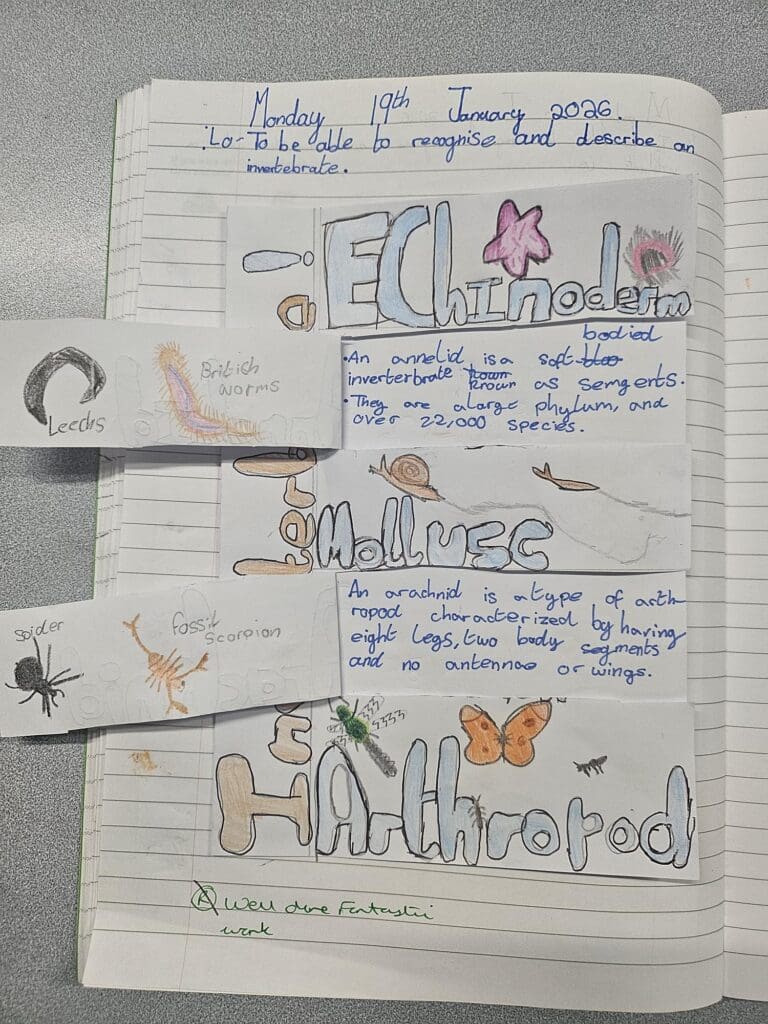 Monday 19th January 2026.
:Lo- To be able to recognise and describe an
invertebrate.
EChInoderm
Leechs
British
worms
bodied
• An annelid is a soft bloo
inverterbrate known
known as semgents.
• They are a large phylum, and
over 22,000 species.
Mollusc
Spider
fossil
Scorpion
An arachnid is a type of arth
ropod characterized by having
eight legs, two body segments
and no antennae or wings.
Arthropod
Well done Fantastic
work